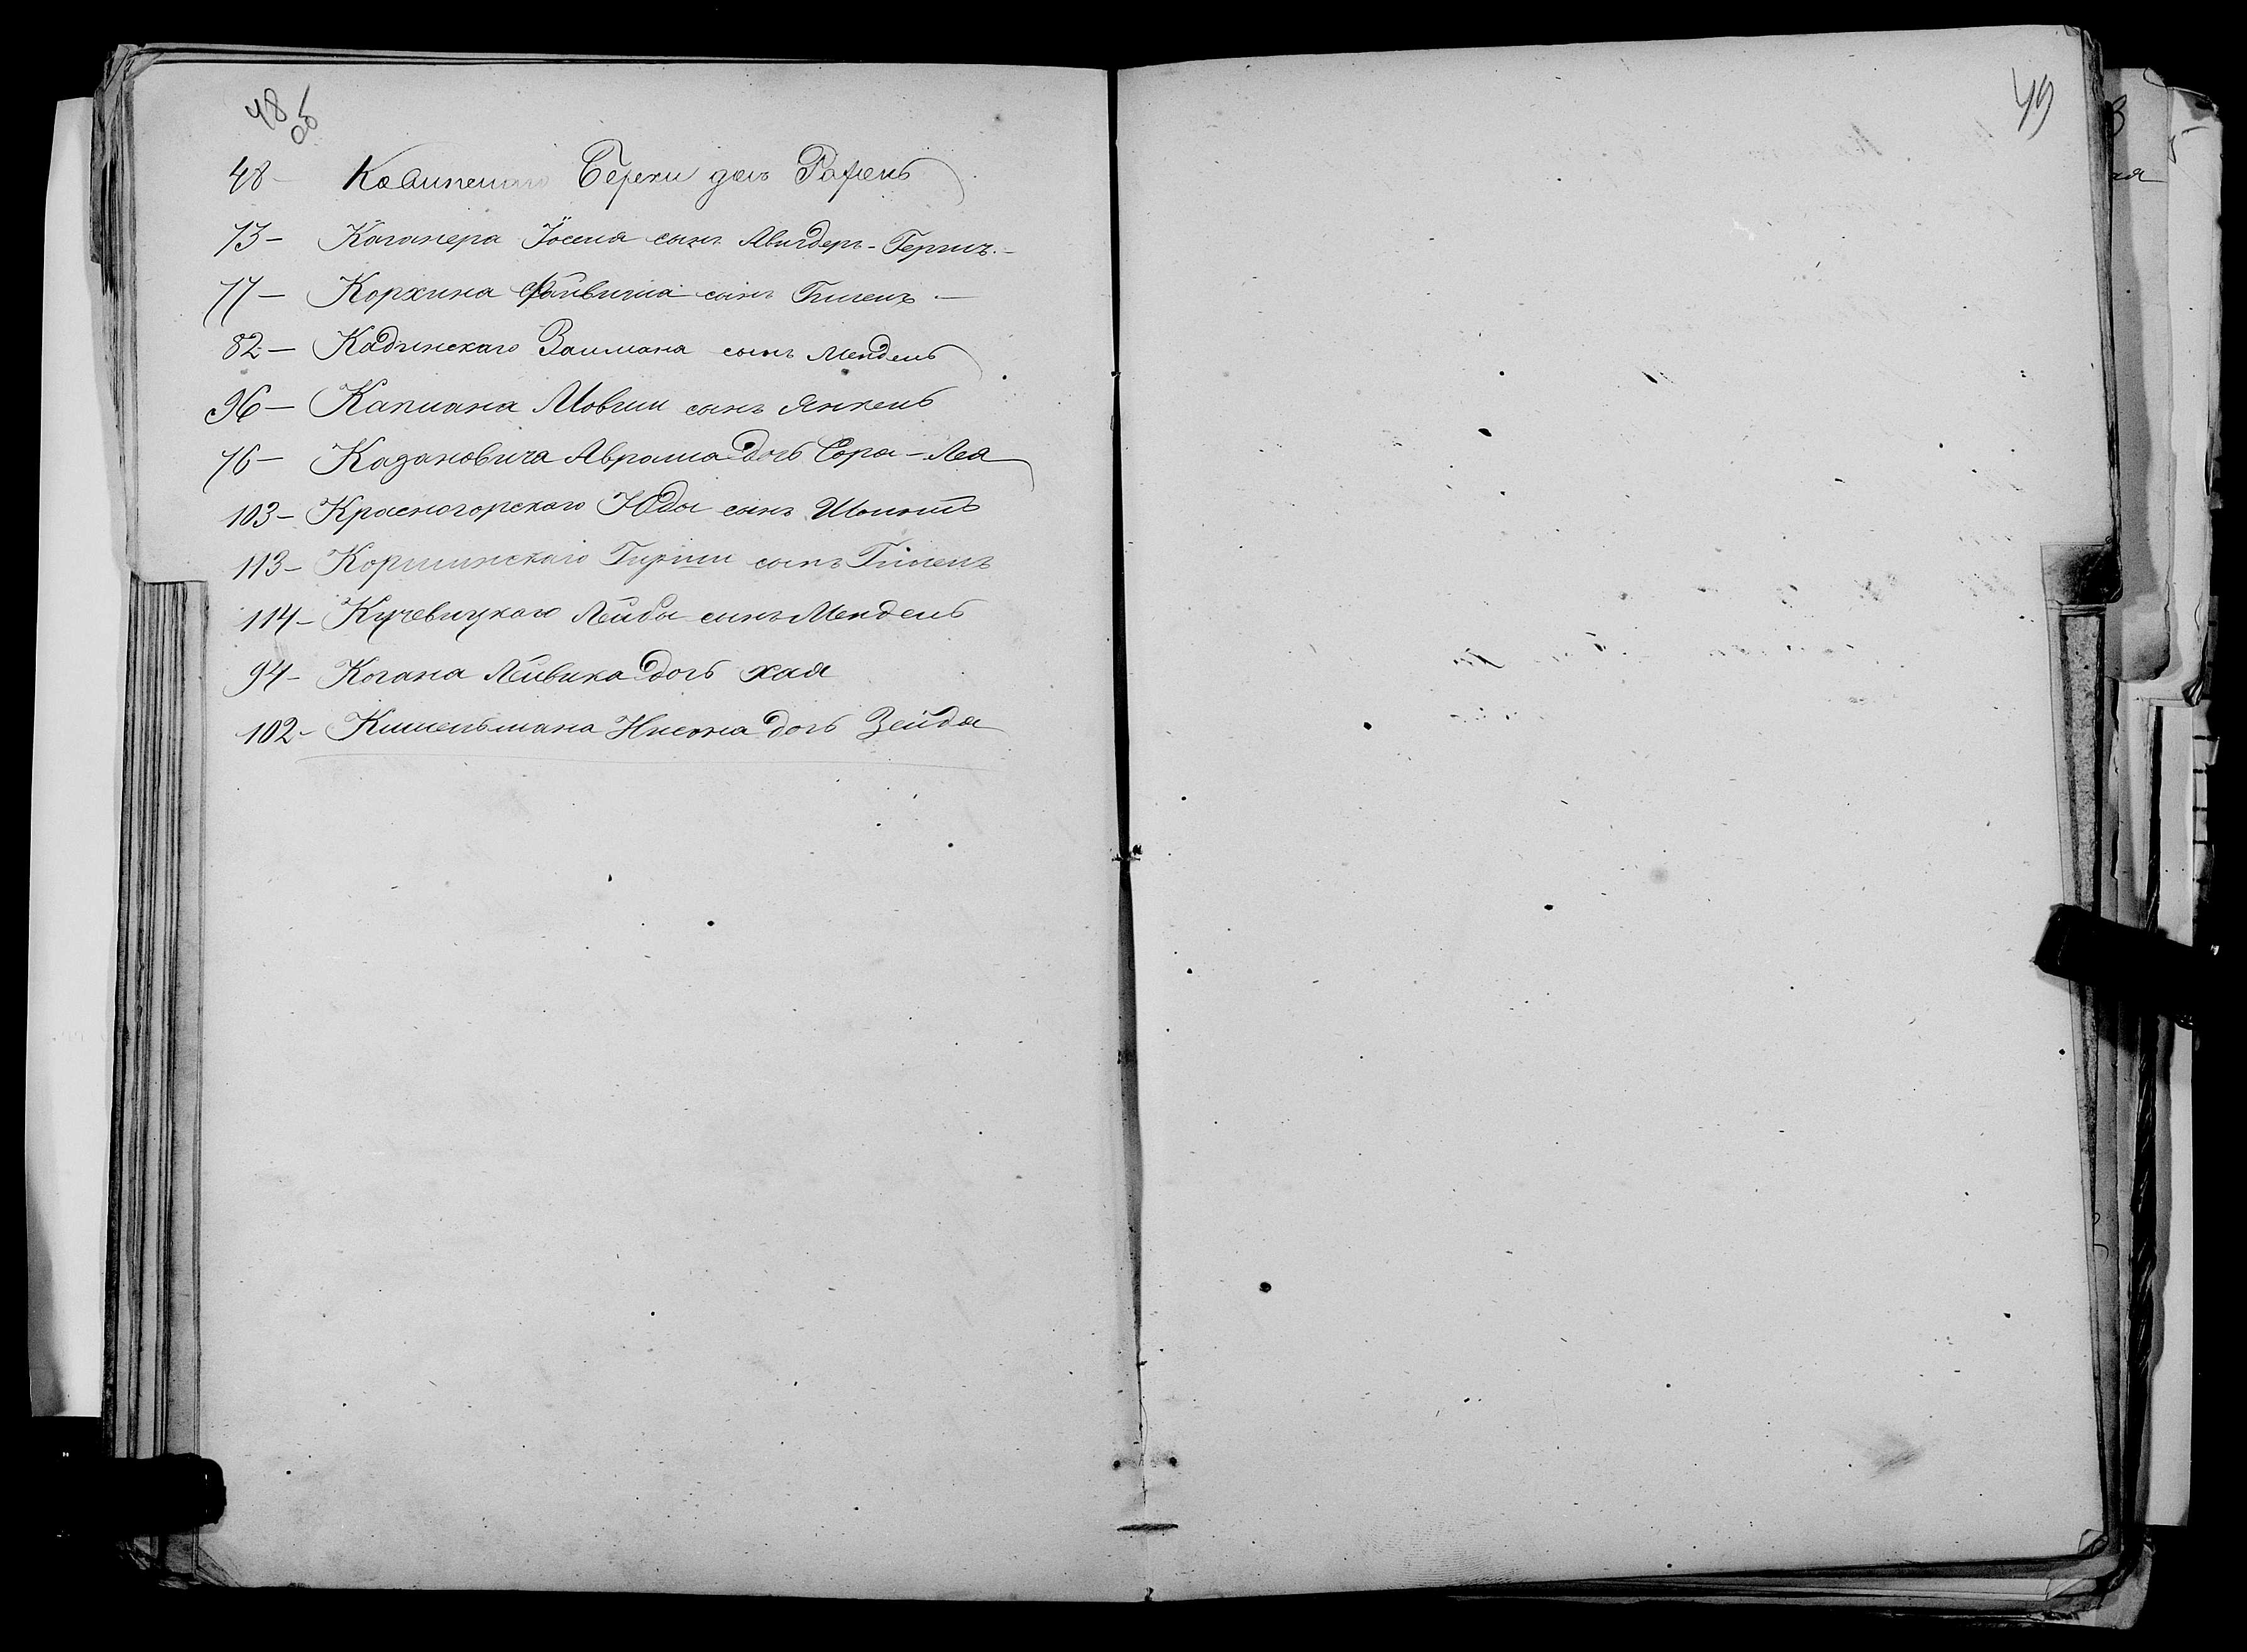 48 об
49
48 – Берки дочь Рафень
73 – Каганера Іоселя сынъ Авигдеръ-Гершъ. –
77 – Корхина Файвиша сынъ Гилелъ –
82 – Кадинскаго Залмана сынъ Мендель
96 – Каплана Мовши сынъ Янкель
76 – Казановича Аврама дочь Сора-Лея
103 – Красногорскаго Юды сынъ
113 – Коршинскаго Гирши сынъ Гилелъ
114 – Кучевицкаго Лейбы сынъ Мендель
94 – Когана Лейвика дочь Хая
102 – Кишельмана Нисона дочь Зейда